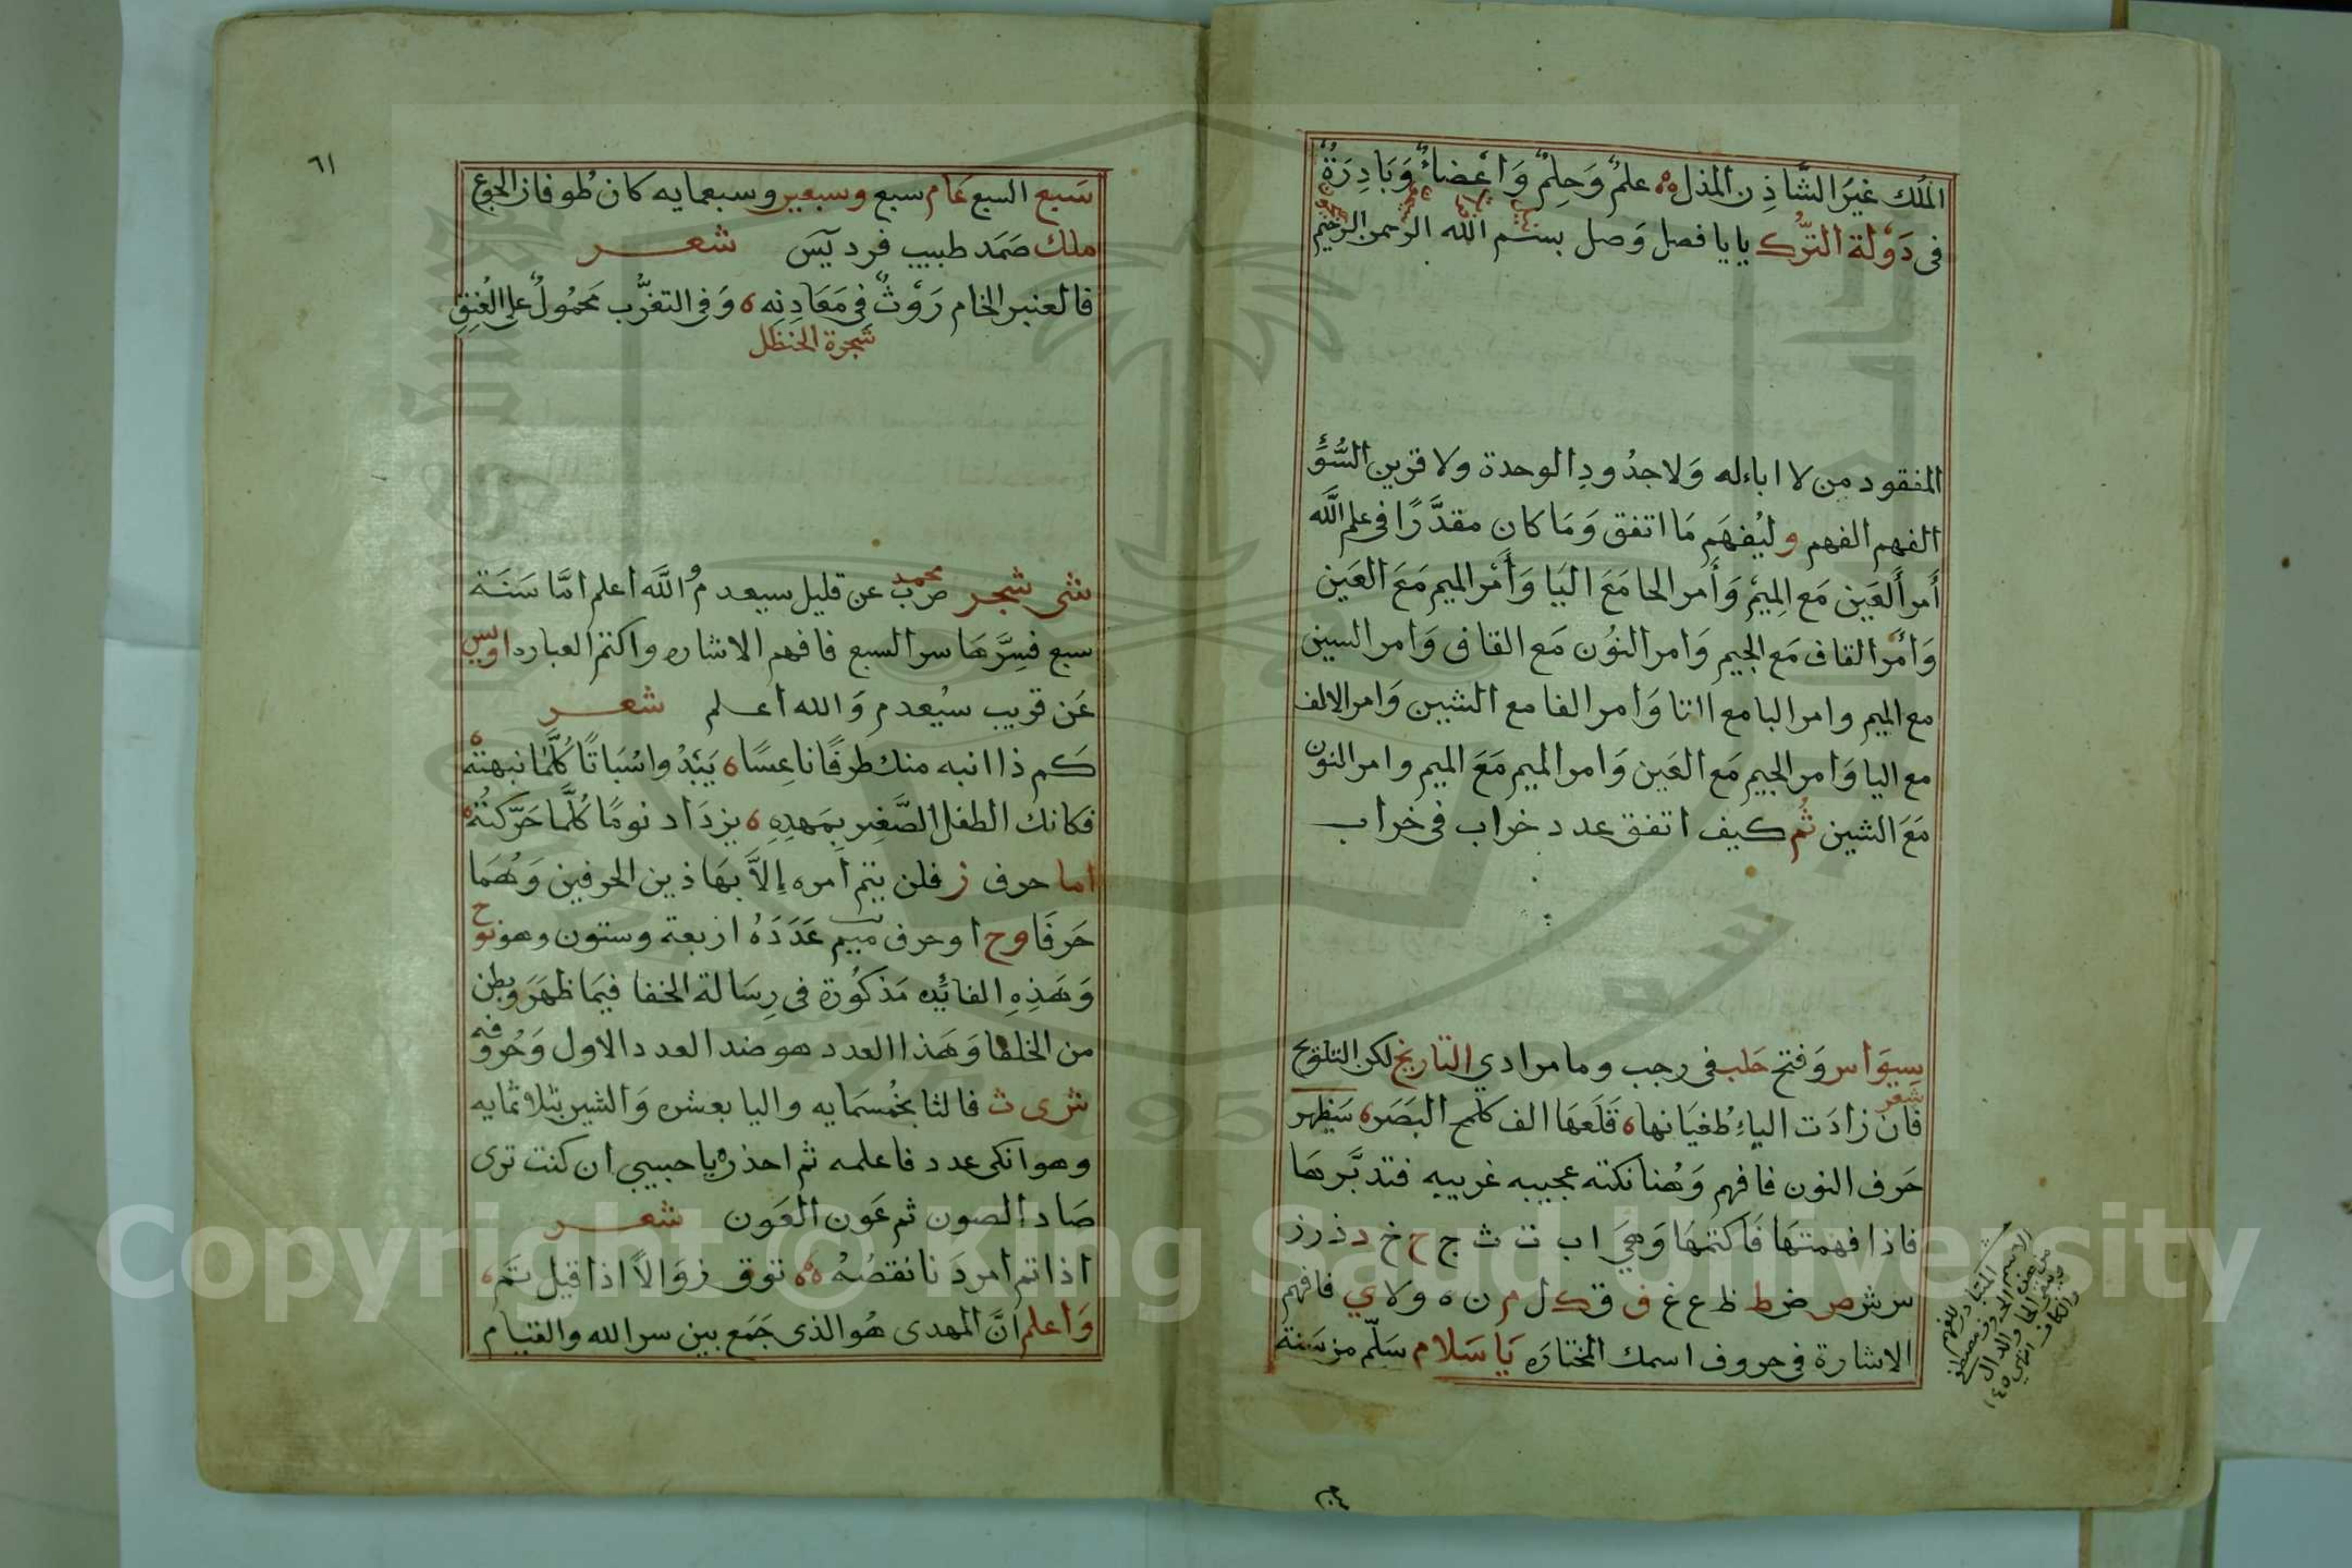 الملك غيرُ الشَّاذِ ن المذل علمٌ وَحِلمٌ وَاعْضاءٌ وَبَادِرَةٌ
فى دَوْلة التُّرك يا يا فصل وَصل بسم الله الرحمن الرحيم
المفقود من لا اباءله وَلا جدُودِ الوحدة ولا قرين السُّوَّ
الفهم الفهم وليُفهَم مَا اتفق وَمَا كان مقدَّرًا فى علم الله
أمر ألعَين مَع المِيمْ وَأمر الحا مَعَ اليَا وَأمْر الميم مَعَ العَين
وَامْر القاف مَع الجيم وَامر النوُن مَع القاف وَامر السين
مع الميم وامر البا مع التا وَامر الفا مع الشين وَامر الالف
مع اليا وَامر الجيم مَع العَين وَامر الميم مَعَ الميم وامر النون
مَعَ الشين ثُم كيف اتفق عدد خراب فى خراب
سِيوَاس وَفتح حَلب فى رجب وما مرادي التاريخ لكن التلويح
شعر
فان زادَت الياءِ طُغيَانها ه قَلَعهَا الف كلمح البَصَر ه سَيَظهر
حَرف النون فافهم وَهُنا نكته عجيبه غريبه فتدبَّرهَا
فاذا فهمتهَا فَاكتمهَا وَهيَ ا ب ت ث ج ح خ د ذ ر ز
س ش ص ض ط ظ ع غ ف ق ك ل م ن ه و لا ي فافهم
الاشارة فى حروف اسمك المختارَه يَا سَلام سَلّم من سَنة
٦١
سَبع السبع عَام سبع وسبعين وسبعمايه كان طوفان الجوع
ملك صَمَد طبيب فرد يٓس شعر
فالعنبر الخام رَوْثٌ فِى مَعَادِنِه ه وَفى التغرُّب مَحمُولٌ على العُنِق
شجرة الحنظل
شى شجر محمد ضرب عن قليل سيعدمُ الله اعلم امَّا سَنَة
سبع فسِرَّهَا سر السبع فافهم الاشاره واكتم العباره اويس
عَن قريب سيُعدم وَالله اعلم شعر
كم ذا انبه منك طرفًا ناعِسًا ه يَبْدُوا سُبَاتًا كُلَّمَا نبهتهُ
فكانك الطفل الصَّغِير بِمَهدِهِ ه يزدَاد نومًا كُلَّما حَرّكتهُ
اما حرف ز فلن يتم أمره إلاَّ بهَاذين الحرفين وَهُمَا
حَرفَا وح ا وحرف ميم عَدَدَهُ اربعة وستون وهو نوح
وَهَذِهِ الفائِده مَذكُورة فى رِسَالة الخفا فيَما ظهَرَ وبطن
من الخلفا وَهَذا العدد هو ضد العدد الاول وَحُروفه
ش ى ث فالثا بخُمسَمايه واليا بعشره وَالشين بثلاثمايه
وهو انكى عدد فاعلمه ثم احذره يا حبيبي ان كنت ترى
صَاد الصون ثم عَون العَون شعر
اذا تم امر دَنا نقصُهُ ه توق زوَالاً اذا قيل تَم ه
وَاعلم أنَّ المهدى هُو الذى جَمَع بين سر الله والقيام
Copyright © King Saud University